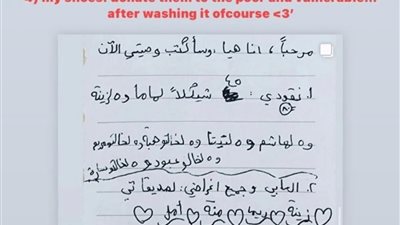 4) my shoes: donate them to the poor and vulnerable...
after washing it ofcourse <3'
مرحباً ، انا هيا ، وسأكتب وصيتي الآن
١ نقودي : ٤٥ شيكلاً لماما و٥ لزينة
و٥ لهاشم و٥ لتيتا و٥ لخالتو هبة و٥ لخالتو مريم
و٥ لخالو عبود و٥ لخالتو سارة
٢. ألعابي وجميع اغراضي: لصديقاتي
زينة ريما منة أمل